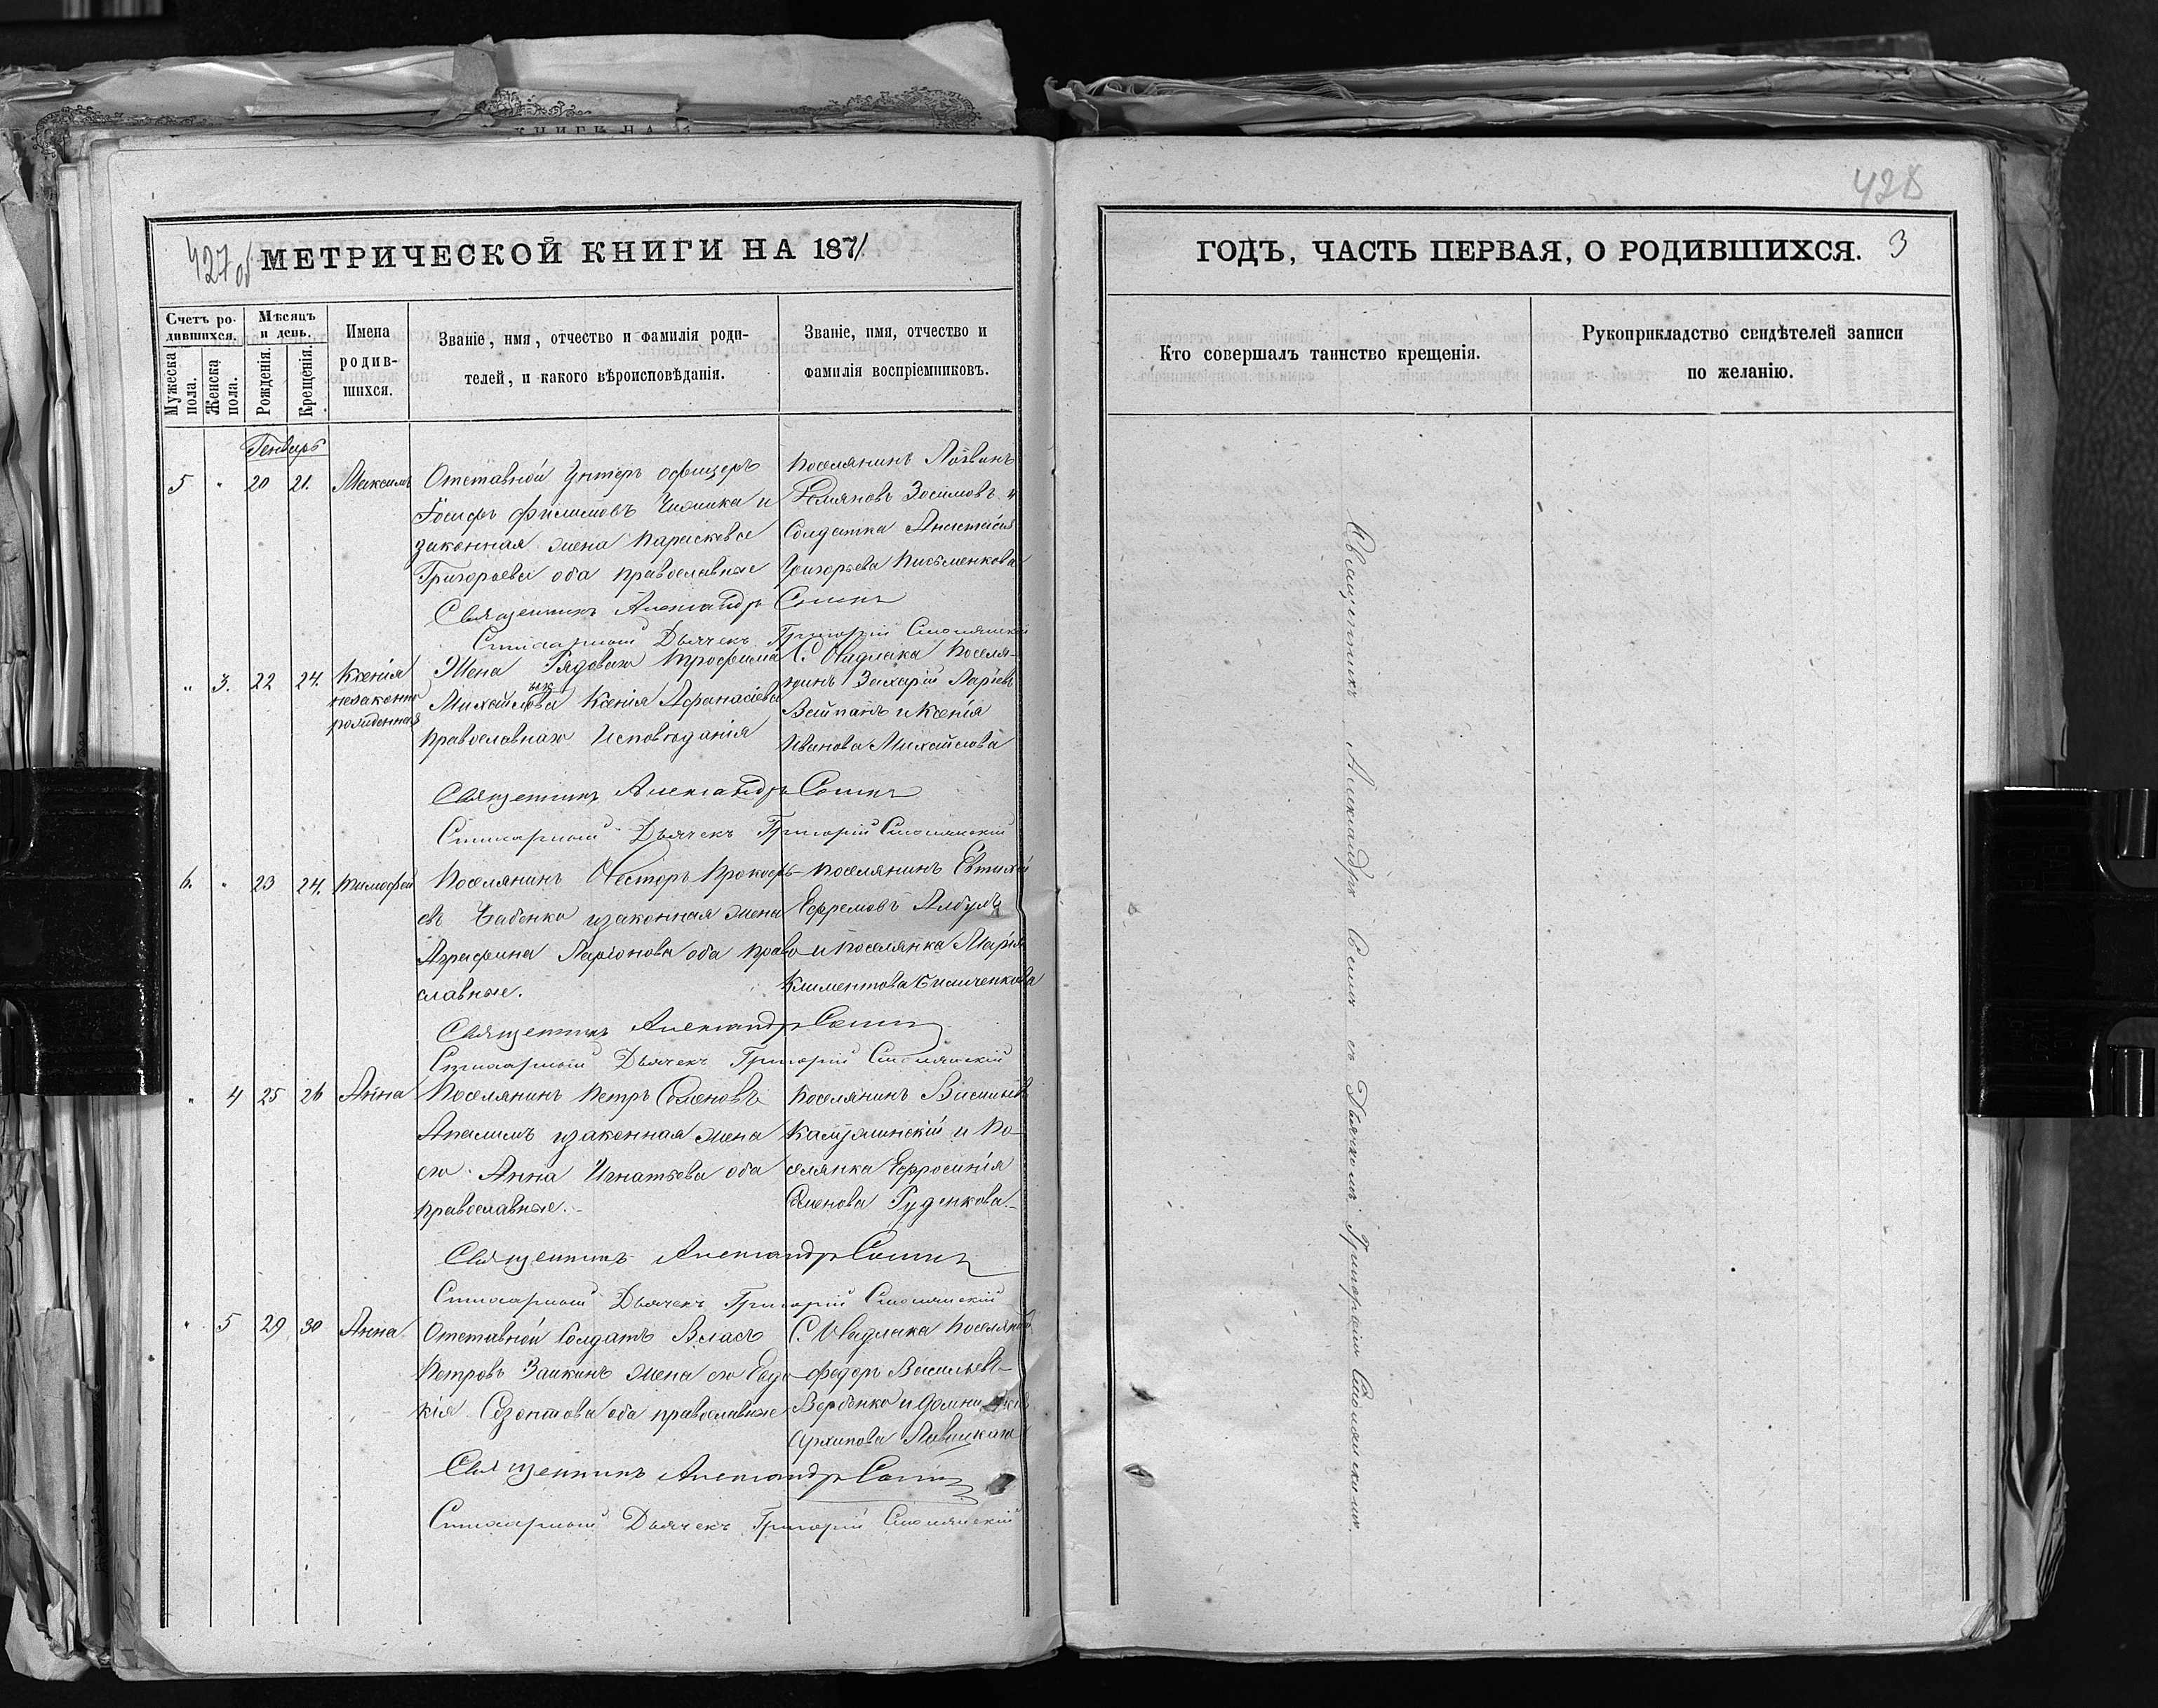 427 об
МЕТРИЧЕСКОЙ КНИГИ НА 1871
Счетъ ро-
дившихся.
Мѣсяцъ
и день.
Мужеска
пола.
Женска
пола.
Рожденія.
Крещенія.
Имена
родив-
шихся.
Званіе, имя, отчество и фамилія роди-
телей, и какого вѣроисповѣданія.
Званіе, имя, отчество и
фамилія воспріемниковъ.
Генварь
5 " 20 21. Максимъ
Отставной Унтеръ офицеръ
Іосифъ Филимовъ и
законная жена Параскева
Григорьева оба православные
Поселянинъ
Зосимовъ и
Солдатка Анастасія
Григорьева Письменкова
Священникъ Александръ
Стихарный Дьячекъ Григорій Смолянскій
" 3. 22 24. Ксенія
незаконно
рожденная
Жена Рядоваго Трофима
Михайлова Ксенія Афанасіева
православнаго Исповѣданія
С. Надлака Поселя-
нинъ Захарій Ларіевъ
и Ксенія
Иванова Михайлова
Священникъ Александръ
Стихарный Дьячекъ Григорій Смолянскій
6. " 23 24. Тимофей
Поселянинъ Несторъ Прокофь-
евъ Бабенко изаконная жена
Агрефина Ларіонова оба право
славные.
Поселянинъ Евтихій
Ефремовъ
и поселянка Марія
Климентова
Священникъ Александръ
Стихарный Дьячекъ Григорій Смолянскій
" 4 25 26 Анна
Поселянинъ Петръ Семеновъ
изаконная жена
его Анна Игнатьева оба
православные.
Поселянинъ Василій
и По-
селянка Ефросинія
Семенова Руденкова.
Священникъ Александръ
Стихарный Дьячекъ Григорій Смолянскій
" 5 29 30 Анна
Отставной Солдатъ Власъ
Петровъ Заикинъ жена его Евдо-
кія Созонтова оба православные
С. Надлака Поселянинъ
Федоръ Васильевъ
Вербенко и
Архипова
Священникъ Александръ
Стихарный Дьячекъ Григорій Смолянскій
428
ГОДЪ, ЧАСТЬ ПЕРВАЯ, О РОДИВШИХСЯ. 3
Кто совершалъ таинство крещенія.
Рукоприкладство свидѣтелей записи
по желанію.
Священникъ Александръ съ Дьячкомъ Григоріемъ Смолянскимъ.